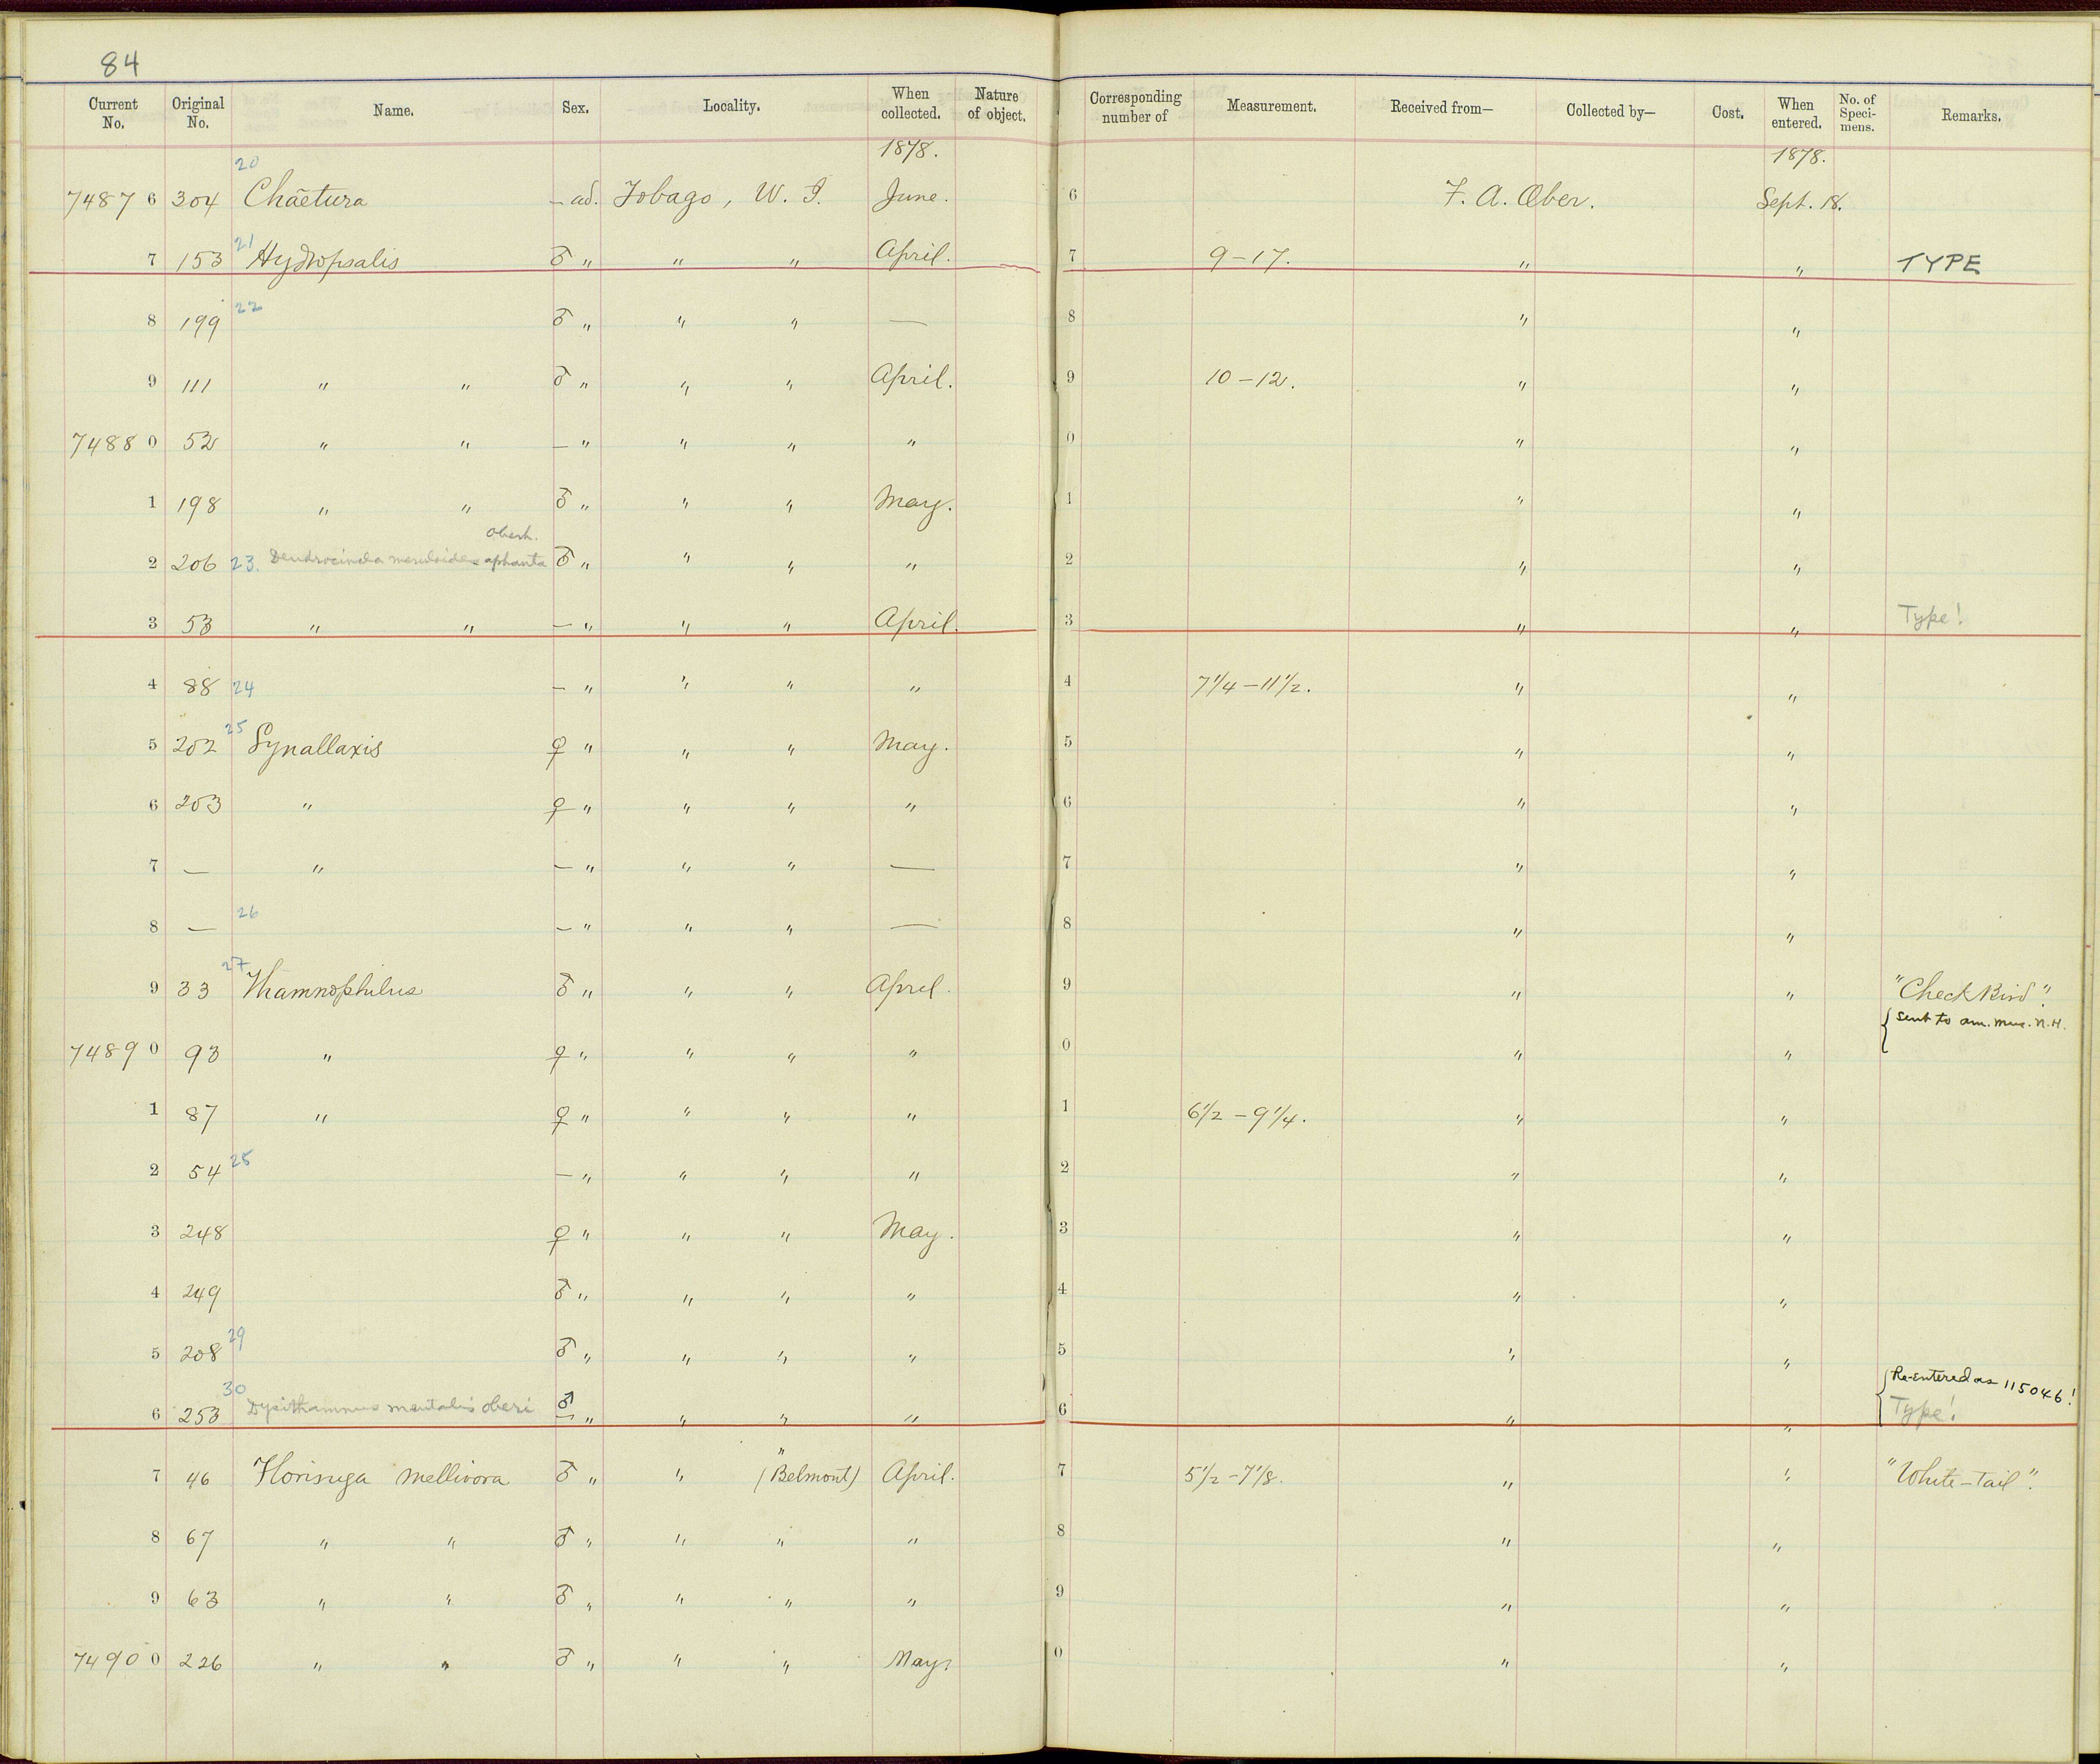 84
Current No. Original No. Name. Sex. Locality. When collected. Nature of object. Corresponding number of Measurement. Received from— Collected by— Cost. When entered. No. of Speci-mens. Remarks.
1878. 1878.
20
7487 6 304 Chaetura — ad. Tobago, W. I. June. 6 F. A. Ober. Sept. 18.
21
7 153 Hydropsalis ♂ " " " April. 7 9–17. " " TYPE
22
8 199 ♂ " " " — 8 " "
9 111 " " ♂ " " " April. 9 10–12. " "
7488 0 52 " " — " " " " 0 " "
1 198 " " ♂ " " " May. 1 " "
Oberh.
2 206 23. Dendrocincla meruloides aphanta ♂ " " " " 2 " "
3 53 " " — " " " April. 3 " " Type!
4 88 24 — " " " " 4 7 1/4 – 11 1/2. " "
25
5 202 Synallaxis ♀ " " " May. 5 " "
6 203 " ♀ " " " " 6 " "
7 — " — " " " — 7 " "
26
8 — — " " " — 8 " "
27
9 33 Thamnophilus ♂ " " " April. 9 " " "Check Bird".
{ Sent to am. mus. N.H.
7489 0 93 " ♀ " " " " 0 " "
1 87 " ♀ " " " " 1 6 1/2 – 9 1/4. " "
2 54 28 — " " " " 2 " "
3 248 ♀ " " " May. 3 " "
4 249 ♂ " " " " 4 " "
29
5 208 ♂ " " " " 5 " "
30 ♂ { Re-entered as 115046!
6 253 Dysithamnus mentalis oberi — " " " " 6 " " Type!
"
7 46 Florisuga mellivora ♂ " " (Belmont) April. 7 5 1/2 – 7 1/8. " " "White-Tail".
8 67 " " ♂ " " " " 8 " "
9 63 " " ♂ " " " " 9 " "
7490 0 226 " " ♂ " " " May. 0 " "